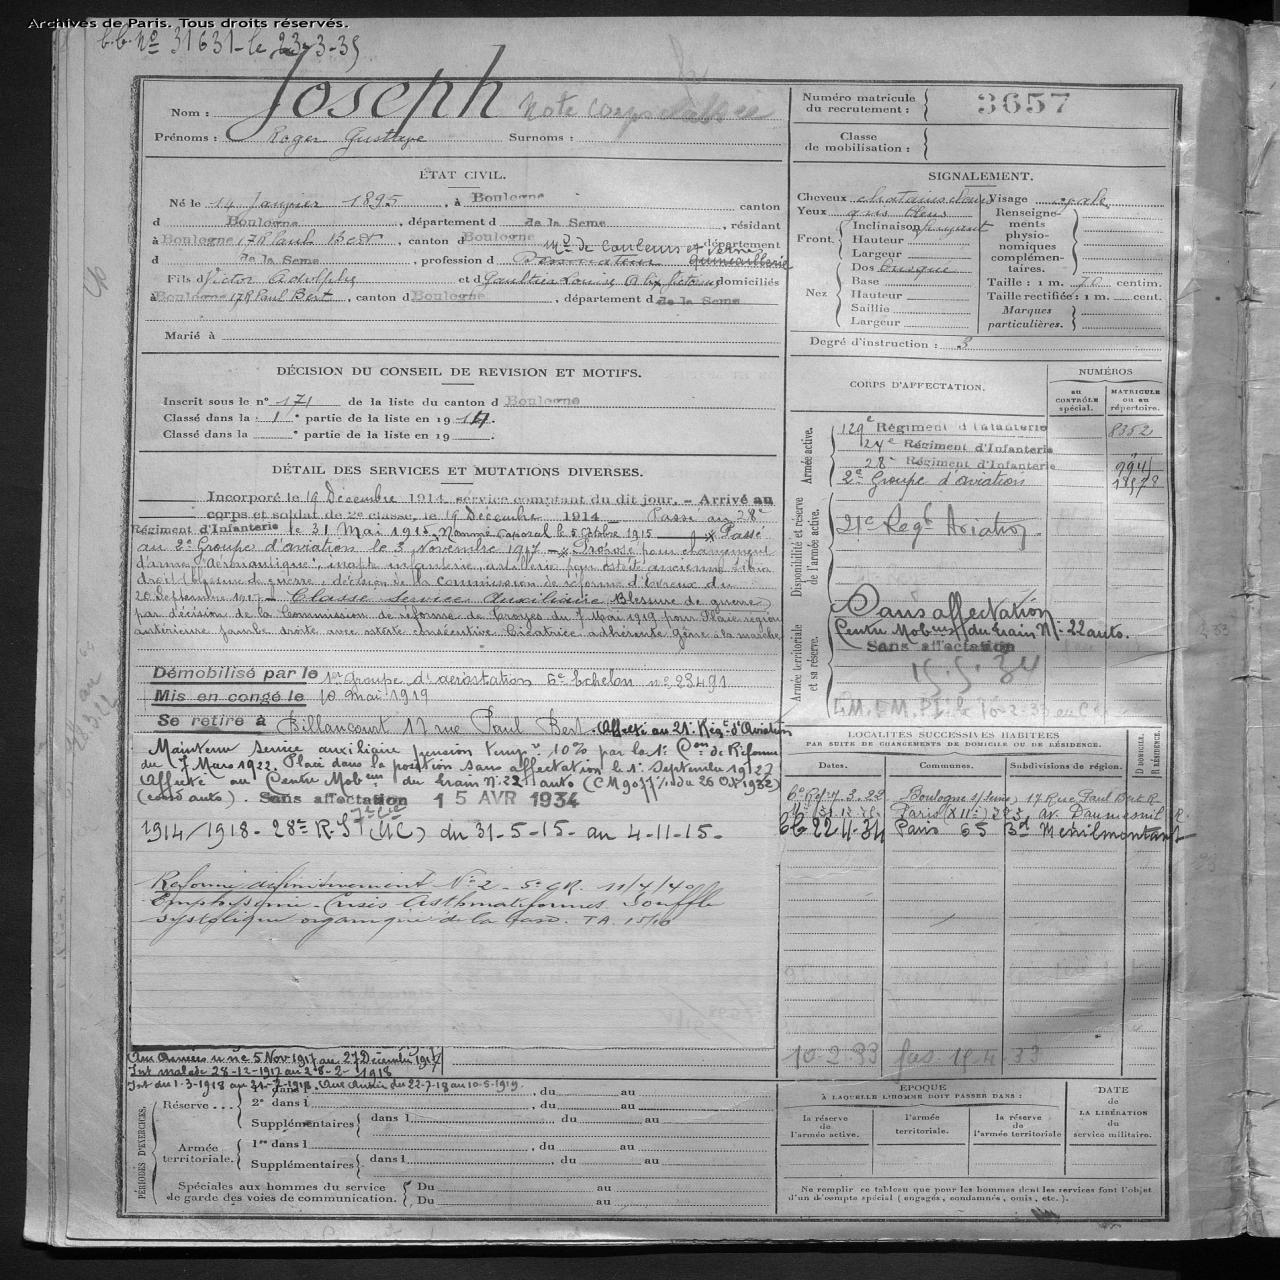 Archives de Paris. Tous droits réservés.
b.b. no 31631 - le 23-3-35
Nom : Joseph
Note
Prénoms : Roger Gustave Surnoms :
Numéro matricule
du recrutement : 3657
Classe
de mobilisation :
ÉTAT CIVIL.
Né le 14 Janvier 1895, à Boulogne canton
d Boulogne, département d de la Seine, résidant
à Boulogne 17 R Paul Bert, canton d Boulogne département
Md de Couleurs et Vernis
d de la Seine, profession d Quincaillerie
Fils d Victor Adolphe et d Gaultier Louise domiciliés
à Boulogne 17 R Paul Bert, canton d Boulogne, département d de la Seine
Marié à
SIGNALEMENT.
Cheveux châtains Visage ovale
Yeux gris bleus
Front. Inclinaison fuyant
Hauteur
Largeur
Nez Dos busqué
Base
Hauteur
Saillie
Largeur
Renseigne-
ments
physio-
nomiques
complémen-
taires.
Taille : 1 m. 70 centim.
Taille rectifiée : 1 m. cent.
Marques
particulières.
Degré d'instruction : 3
DÉCISION DU CONSEIL DE REVISION ET MOTIFS.
Inscrit sous le n° 171 de la liste du canton d Boulogne
Classé dans la 1e partie de la liste en 1914.
Classé dans la e partie de la liste en 19
CORPS D'AFFECTATION.
NUMÉROS
au
CONTRÔLE
spécial.
MATRICULE
ou au
répertoire.
Armée active.
129e Régiment d'Infanterie 8352
24e Régiment d'Infanterie
28e Régiment d'Infanterie
2e Groupe d'aviation
Disponibilité et réserve
de l'armée active.
21e Regt Aviation
Armée territoriale
et sa réserve.
Sans affectation
Centre Mob du train No 22 auto.
Sans affectation
15.5.34
DÉTAIL DES SERVICES ET MUTATIONS DIVERSES.
Incorporé le 19 Décembre 1914, service comptant du dit jour, - Arrivé au
corps et soldat de 2e classe, le 19 Décembre 1914 - Passé au 28e
Régiment d'Infanterie le 31 Mai 1915. Nommé caporal le 5 Octobre 1915 - Passé
au 2e Groupe d'aviation le 3 Novembre 1917 - Proposé pour changement
d'arme "aéronautique", inapte infanterie, artillerie pour ostéite ancienne tibia
droit (blessure de guerre) décision de la commission de réforme d'Evreux du
20 Septembre 1917 - Classé service Auxiliaire (Blessure de guerre)
par décision de la Commission de réforme de Troyes du 7 Mai 1919 pour Plaie région
antérieure jambe droite avec ostéite consécutive. Cicatrice adhérente Gêne à la marche
Démobilisé par le 1er Groupe d'aérostation 6e Echelon no 23491
Mis en congé le 10 mai 1919
Se retire à Billancourt 17 rue Paul Bert. Affecté au 21e Régt d'Aviation
Maintenu Service auxiliaire pension tempre 10% par la 1e Con de Réforme
du 7 Mars 1922. Placé dans la position sans affectation le 1er Septembre 1927
Affecté au Centre Mob du train No 22 auto
Sans affectation 15 AVR 1934
1914/1918 - 28e R.I (UC) du 31-5-15 - au 4-11-15 -
Réformé définitivement No 2 - 5e CR. 11/7/40
Emphysème - Crises Asthmatiformes. Souffle
systolique organique de la base. TA. 15/10
LOCALITÉS SUCCESSIVES HABITÉES
PAR SUITE DE CHANGEMENTS DE DOMICILE OU DE RÉSIDENCE.
Dates. Communes. Subdivisions de région. D DOMICILE. R RÉSIDENCE.
7.3.22 Boulogne s/Seine, 17 Rue Paul Bert R
Paris (XIIe) 293 av. Daumesnil R.
22.4.34 Paris 65 Bd Menilmontant
10-2-33
Aux Armées 5 Nov. 1917 au 27 Décembre 1917
Int malade 28-12-1917 au 28-2-1918
Int du 1-3-1918 au 21-7-1918. Aux Armées du 22-7-18 au 10-5-1919.
PÉRIODES D'EXERCICES.
Réserve . . . 1re dans l , du au
2e dans l , du au
Supplémentaires dans l du au
Armée
territoriale. 1re dans l , du au
Supplémentaires dans l du au
Spéciales aux hommes du service
de garde des voies de communication. Du au
Du au
ÉPOQUE
À LAQUELLE L'HOMME DOIT PASSER DANS :
la réserve
de
l'armée active.
l'armée
territoriale.
la réserve
de
l'armée territoriale
DATE
de
LA LIBÉRATION
du
service militaire.
Ne remplir ce tableau que pour les hommes dont les services font l'objet
d'un décompte spécial (engagés, condamnés, omis, etc.).